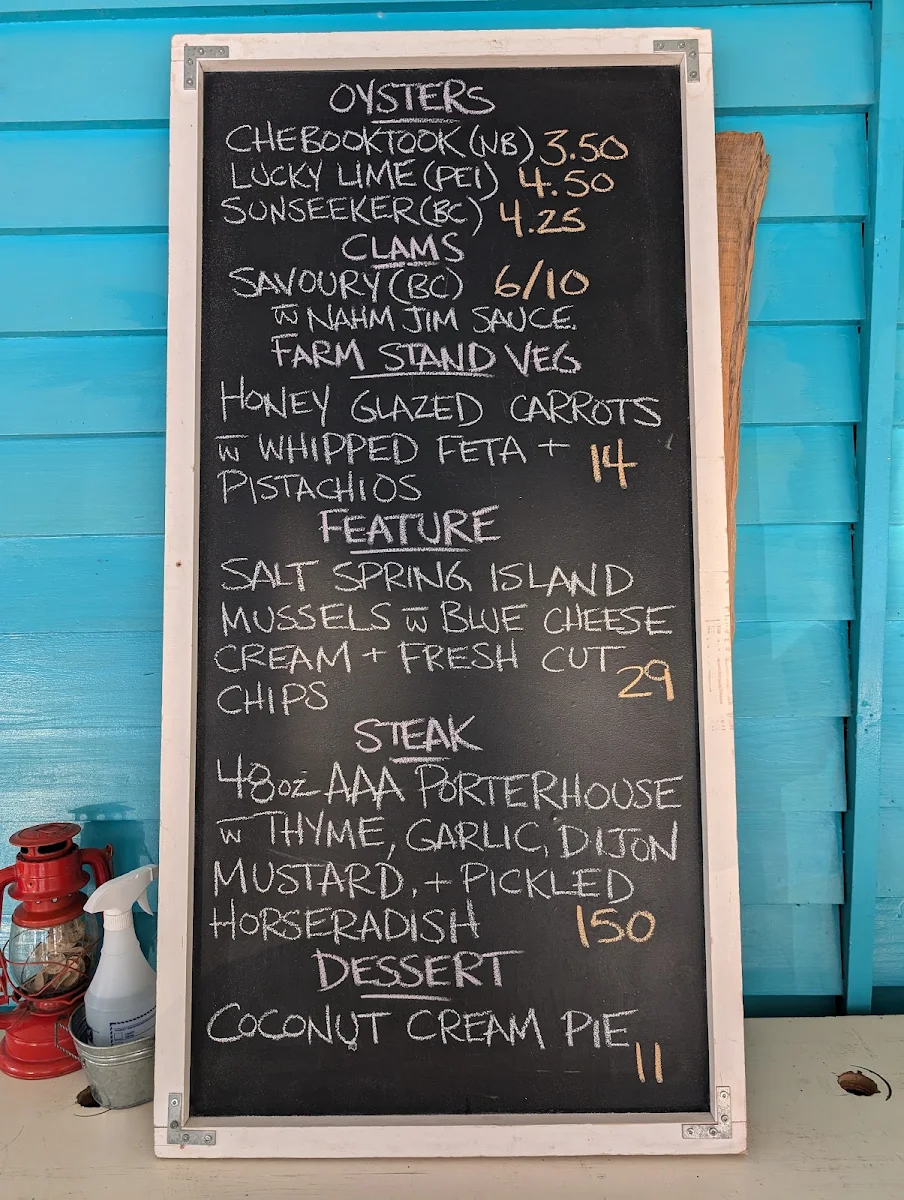 OYSTERS
CHEBOOKTOOK (NB) 3.50
LUCKY LIME (PEI) 4.50
SUNSEEKER (BC) 4.25
CLAMS
SAVOURY (BC) 6/10
w̅ NAHM JIM SAUCE.
FARM STAND VEG
HONEY GLAZED CARROTS
w̅ WHIPPED FETA + 14
PISTACHIOS
FEATURE
SALT SPRING ISLAND
MUSSELS w̅ BLUE CHEESE
CREAM + FRESH CUT 29
CHIPS
STEAK
48oz AAA PORTERHOUSE
w̅ THYME, GARLIC, DIJON
MUSTARD, + PICKLED
HORSERADISH 150
DESSERT
COCONUT CREAM PIE
11